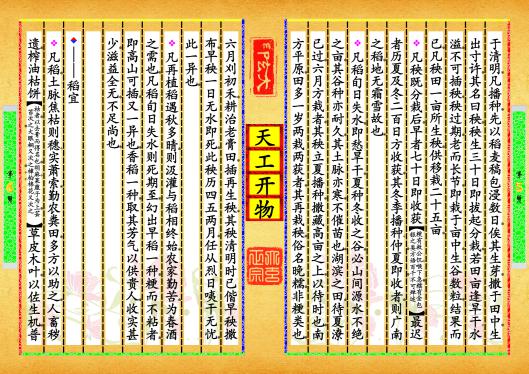 于清明凡播种先以稻麦稿包浸数日俟其生芽撒于田中生
出寸许其名曰秧秧生三十日即拔起分栽若田亩逢旱干水
溢不可插秧秧过期老而长节即栽于亩中生谷数粒结果而
已凡秧田一亩所生秧供移栽二十五亩
凡秧既分栽后早者七十日即收获【粳有救公饥喉下急糯有金包银之类方语百千不可殚述】最迟
者历夏及冬二百日方收获其冬季播种仲夏即收者则广南
之稻地无霜雪故也
凡稻旬日失水即愁旱干夏种冬收之谷必山间源水不绝
之亩其谷种亦耐久其土脉亦寒不催苗也湖滨之田待夏潦
已过六月方栽者其秧立夏播种撒藏高亩之上以待时也南
方平原田多一岁两栽两获者其再栽秧俗名晚糯非粳类也
天工开物
六月刈初禾耕治老膏田插再生秧其秧清明时已偕早秧撒
布早秧一日无水即死此秧历四五两月任从烈日暵干无忧
此一异也
凡再植稻遇秋多晴则汲灌与稻相终始农家勤苦为春酒
之需也凡稻旬日失水则死期至幻出旱稻一种粳而不粘者
即高山可插又一异也香稻一种取其芳气以供贵人收实甚
少滋益全无不足尚也
——稻宜
凡稻土脉焦枯则穗实萧索勤农粪田多方以助之人畜秽
遗榨油枯饼【枯者以去膏而得名也胡麻莱菔子为上芸苔次之大眼桐又次之樟桕棉花又次之】草皮木叶以佐生机普